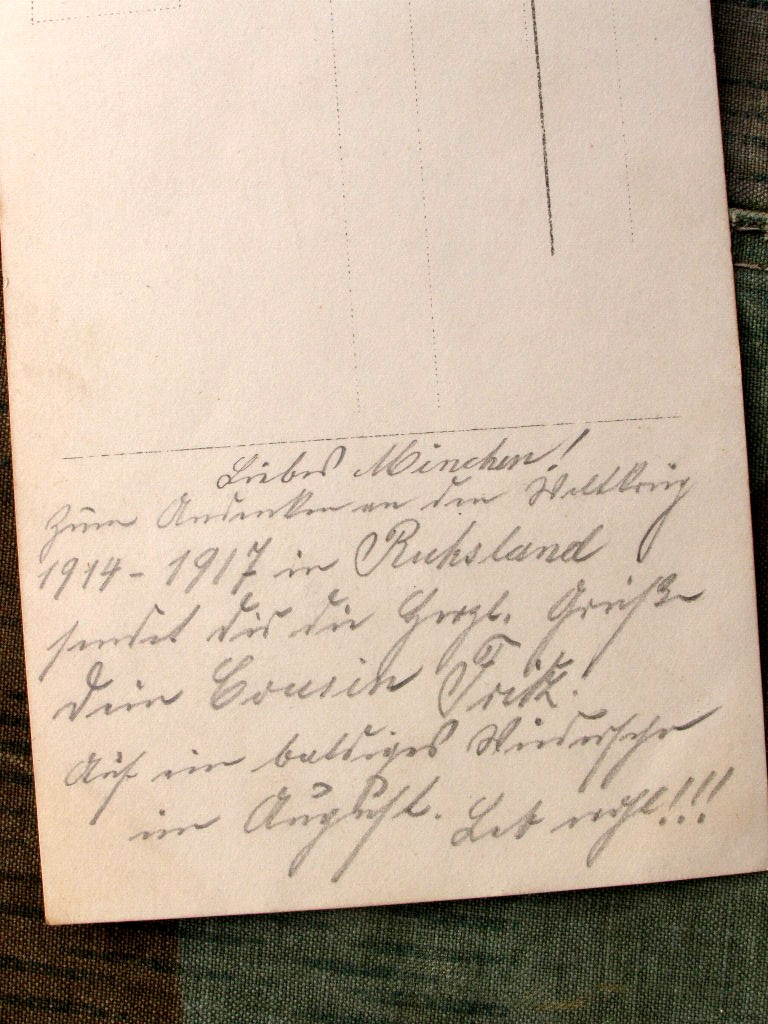 Liebes Minchen!
Zum Andenken an den Weltkrieg
1914-1917 in Rußland
sendet dir die Herzl. Grüße
dein Cousin Fritz.
Auf ein baldiges Wiedersehn
im August. Leb wohl!!!